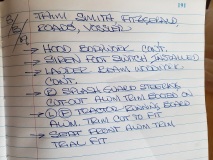 191
THIM SMITH, FITZGERALD
ROADS, VOSSLER
→ HOOD BODYWORK CONT.
→ SIREN FOOT SWITCH INSTALLED
→ LADDER BEAM WOODWORK
CONT.
→ R SPLASH GUARD STEERING
CUT-OUT ALUM TRIM BOLTED ON
→ L F TRACTOR RUNNING BOARD
ALUM. TRIM CUT TO FIT
→ SEAT FRONT ALUM TRIM
TRIAL FIT